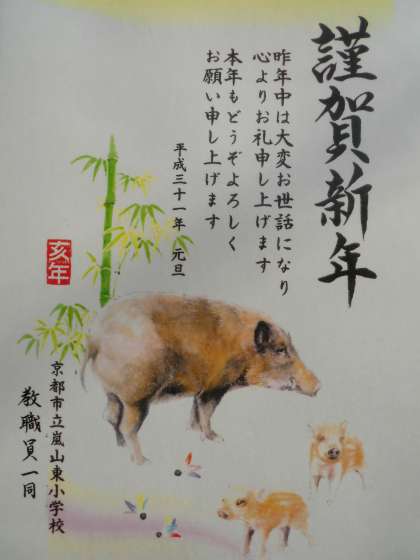 謹賀新年
昨年中は大変お世話になり
心よりお礼申し上げます
本年もどうぞよろしく
お願い申し上げます
平成三十一年 元旦
亥年
京都市立嵐山東小学校
教職員一同